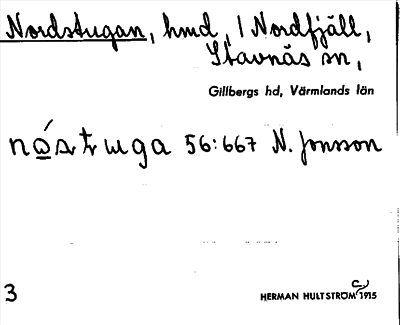 Nordstugan, hmd, i Nordfjäll,
Stavnäs sn,
Gillbergs hd, Värmlands län
56:667 N. Jonsson
3
HERMAN HULTSTRÖM c. 1915